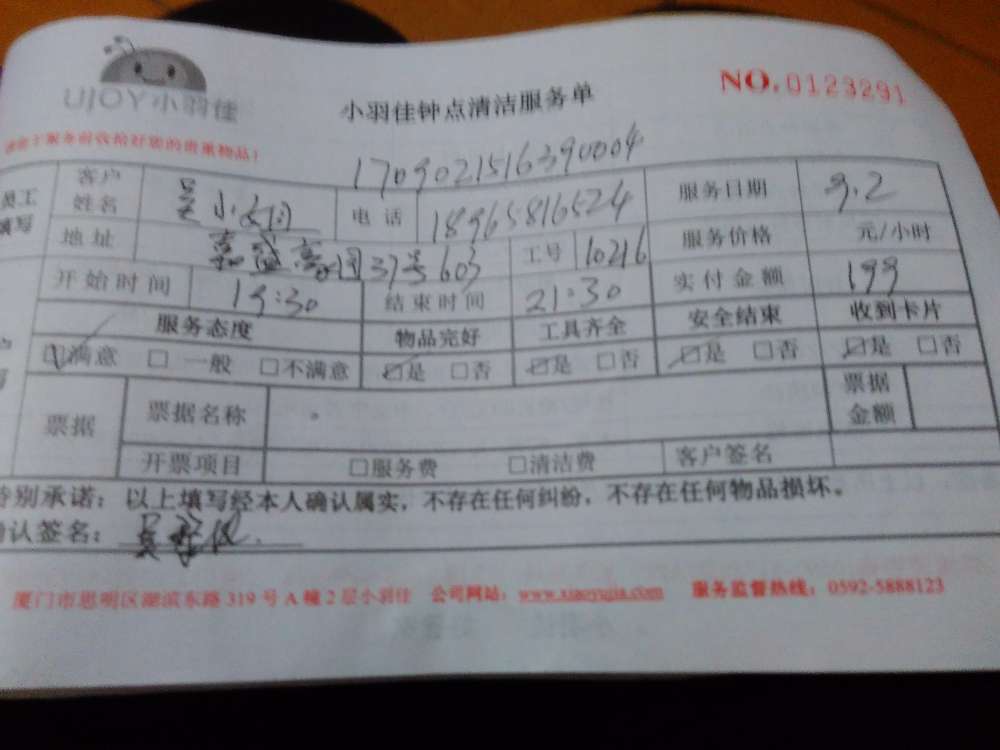 UJOY小羽佳
小羽佳钟点清洁服务单
NO.0123291
服务前收拾好您的贵重物品!
1709021516390004
员工 填写 客户姓名 吴小姐 电话 18965816524 服务日期 9.2
地址 嘉盛豪园37号603 工号 10216 服务价格 元/小时
开始时间 19:30 结束时间 21:30 实付金额 199
服务态度 物品完好 工具齐全 安全结束 收到卡片
☑满意 □一般 □不满意 ☑是 □否 ☑是 □否 ☑是 □否 ☑是 □否
票据 票据名称 票据金额
开票项目 □服务费 □清洁费 客户签名
特别承诺:以上填写经本人确认属实,不存在任何纠纷,不存在任何物品损坏。
确认签名:吴
厦门市思明区湖滨东路319号A幢2层小羽佳 公司网站:www.xiaoyujia.com 服务监督热线:0592-5888123